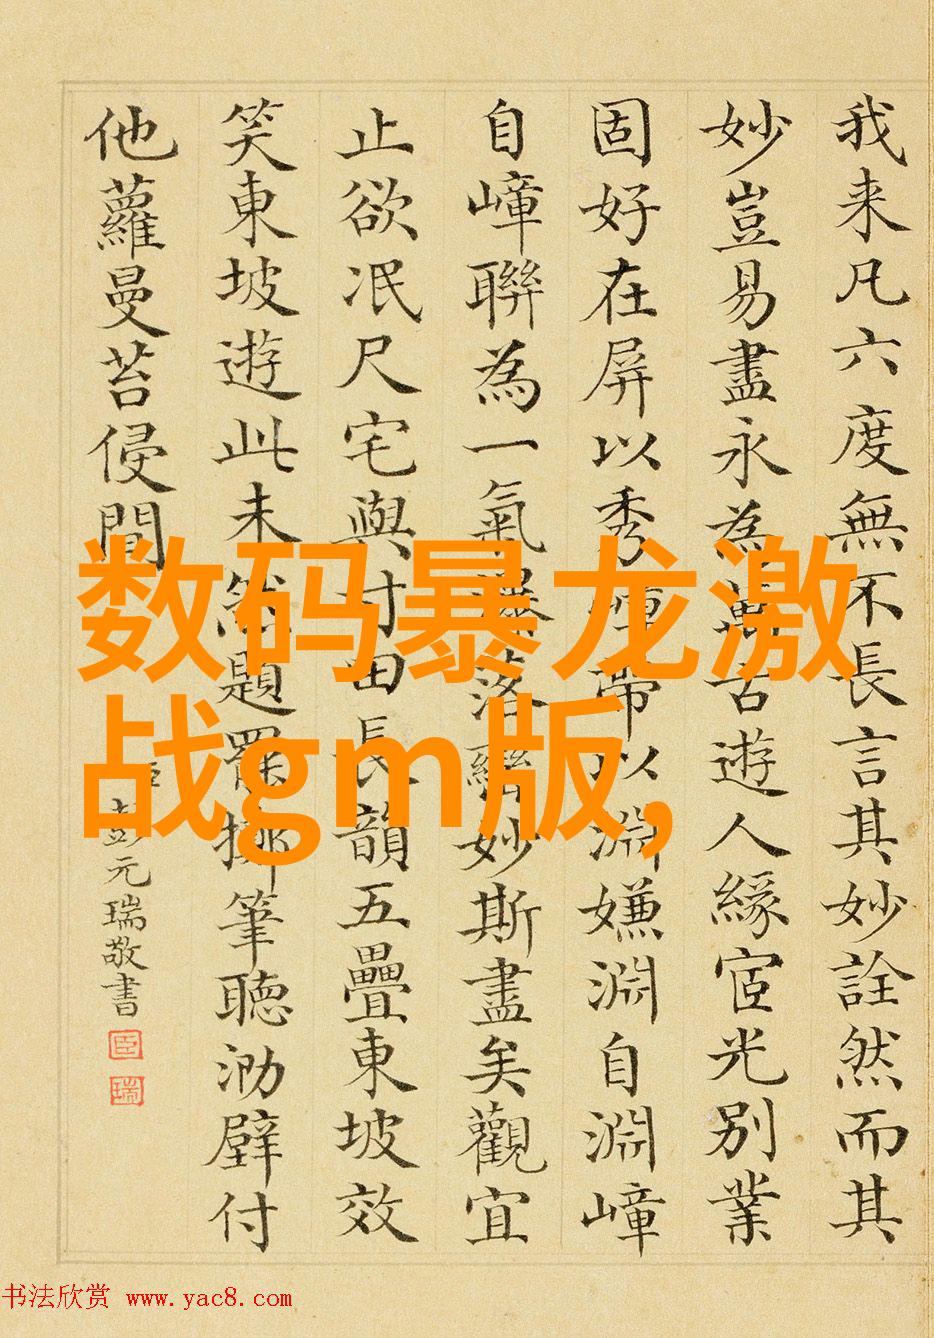 我来凡六度無不長言其妙詮然而其
妙豈易盡永為萬古遊人緣宧光別業
固好在屏以秀帶以淵嫌淵自淵嶂
自嶂聯為一氣落巒妙斯盡矣觀宜
止欲泯尺宅與寸田長韻五疊東坡效
笑東坡遊此未能題罷擲筆聽泐壁付
他蘿曼苔侵間
臣彭元瑞敬書
臣
瑞
数码暴龙激
战gm版,
书法欣赏 www.yac8.com